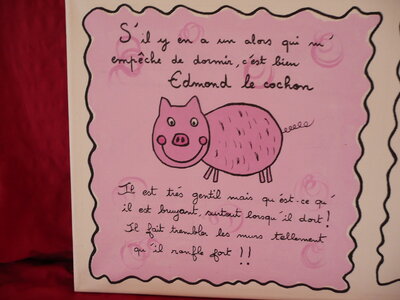 S'il y en a un alors qui m'
empêche de dormir, c'est bien
Edmond le cochon
Il est très gentil mais qu'est-ce qu'
il est bruyant, surtout lorsqu'il dort!
Il fait trembler les murs tellement
qu'il ronfle fort !!